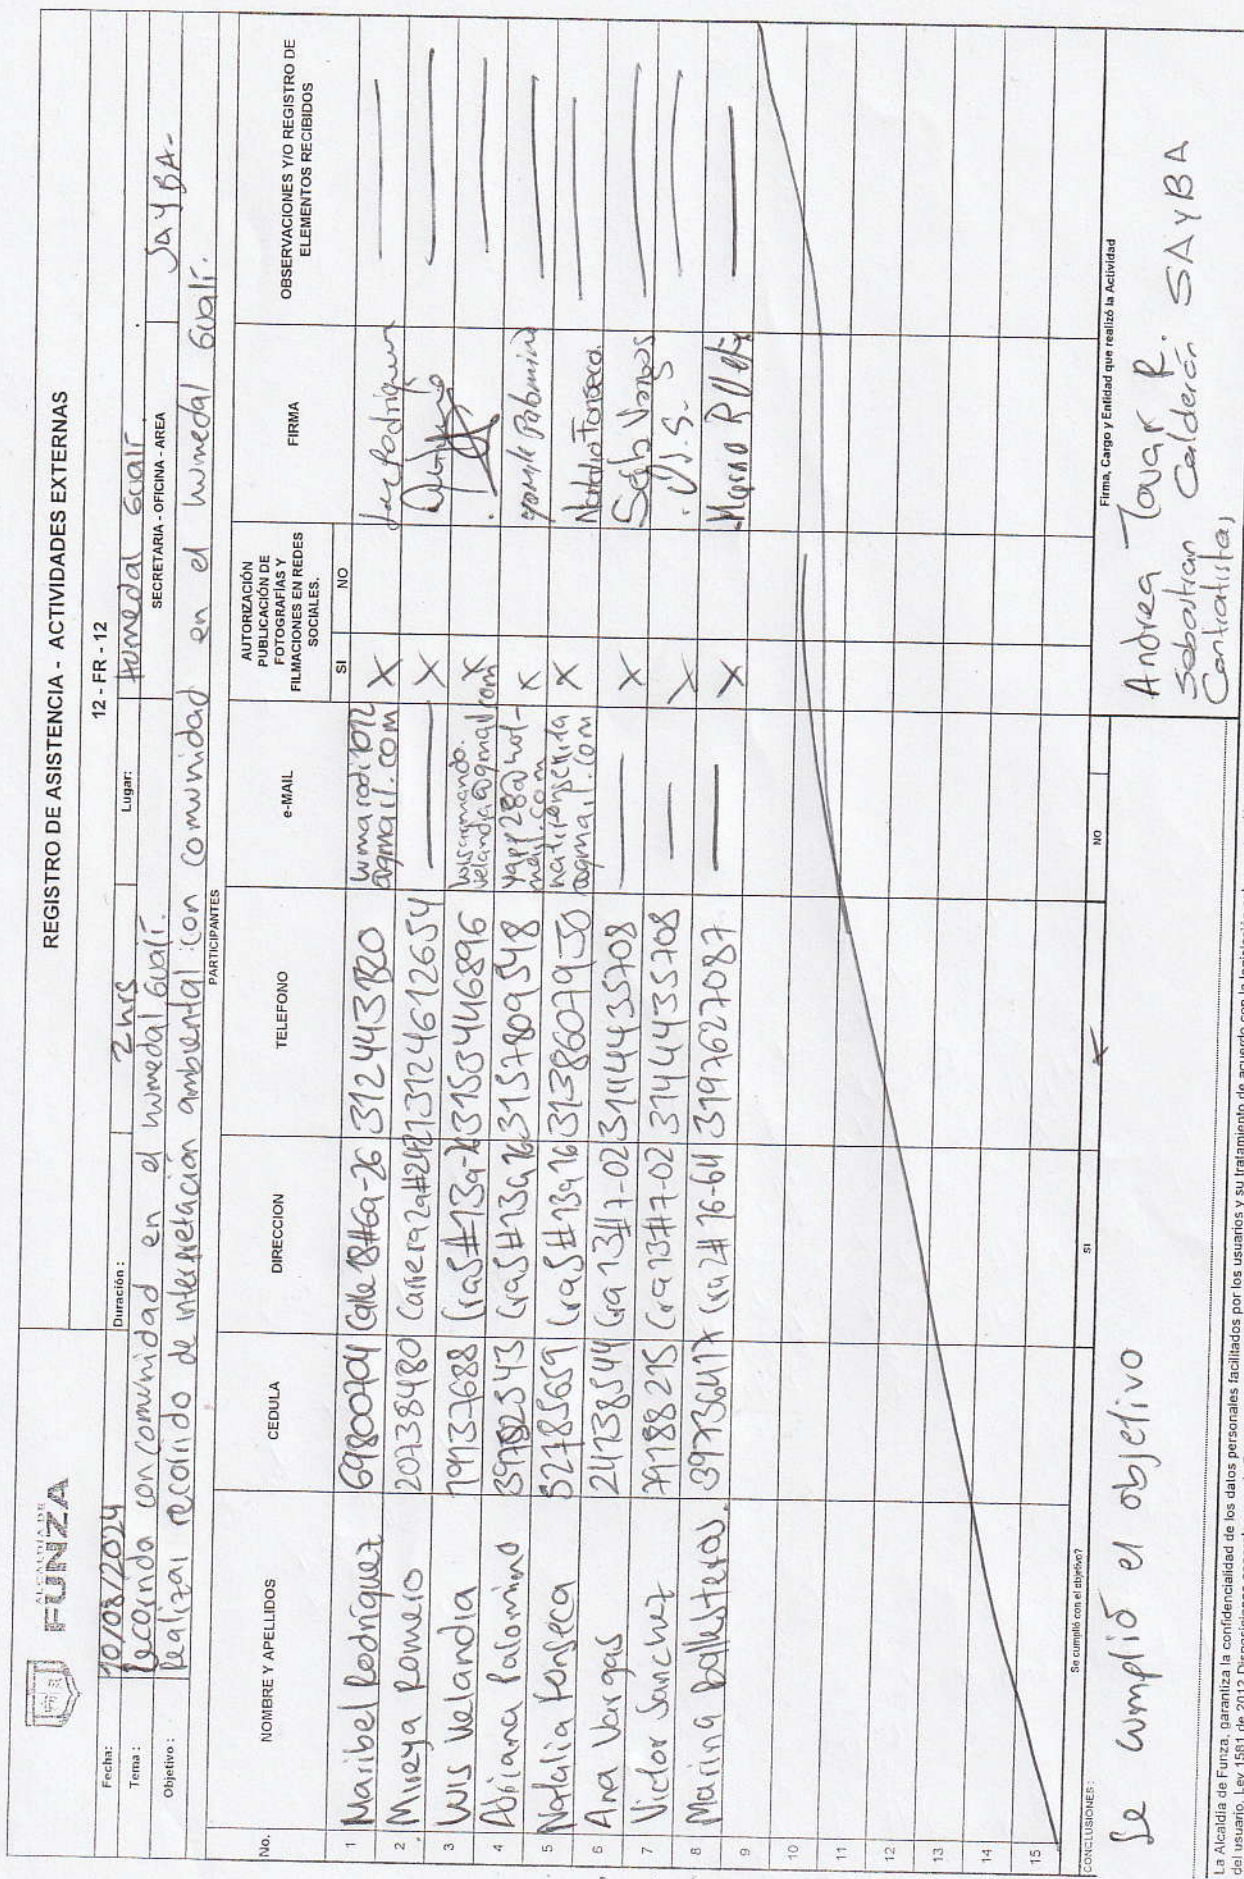 ALCALDÍA DE
FUNZA
REGISTRO DE ASISTENCIA - ACTIVIDADES EXTERNAS
12 - FR - 12
Fecha: 10/08/2024 Duración: 2hrs Lugar: Humedal Gualí
Tema: Recorrido con comunidad en el humedal Gualí. SECRETARIA - OFICINA - AREA SAYBA-
Objetivo: Realizar recorrido de interpretación ambiental con comunidad en el humedal Gualí.
PARTICIPANTES
No. NOMBRE Y APELLIDOS CEDULA DIRECCION TELEFONO e-MAIL AUTORIZACIÓN PUBLICACIÓN DE FOTOGRAFÍAS Y FILMACIONES EN REDES SOCIALES. SI NO FIRMA OBSERVACIONES Y/O REGISTRO DE ELEMENTOS RECIBIDOS
1 Maribel Rodríguez Calle 18#6a-26 3124431320 @gmail.com X Rodriguez
2 Mireya Romero 20738480 Carrera 2a#2421 3124612654 X
3 Luis Velandia 79137688 Cra5#13a-16 3153446896 luisarmando.velandia@gmail.com X
4 Adriana Palomino 39782543 Cra5#13a16 3157809548 yapp28@hotmail.com X Palomino
5 Natalia Fonseca 52785659 Cra5#13a16 3138607930 @gmail.com X Natalia Fonseca.
6 Ana Vargas 24138544 Cra 13#7-02 3144435708 X Vargas
7 Victor Sanchez 79188215 Cra13#7-02 3144435708 X V.S.
8 Marina Ballesteros. 39736417 Cra2#16-64 3197627087 X
9
10
11
12
13
14
15
Se cumplió con el objetivo? SI X NO
CONCLUSIONES:
Se cumplió el objetivo
Firma, Cargo y Entidad que realizó la Actividad
Andrea Tovar R. SAYBA
Sebastian Calderón
Contratistas
La Alcaldía de Funza, garantiza la confidencialidad de los datos personales facilitados por los usuarios y su tratamiento de acuerdo con la legislación
del usuario. Ley 1581 de 2012 Disposiciones